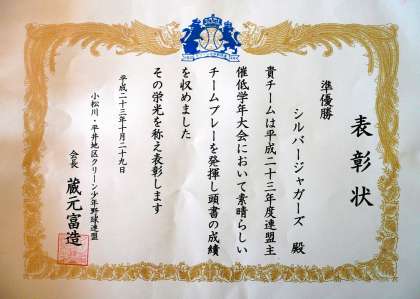 表彰状
準優勝
シルバージャガーズ 殿
貴チームは平成二十三年度連盟主
催低学年大会において素晴らしい
チームプレーを発揮し頭書の成績
を収めました
その栄光を称え表彰します
平成二十三年十月二十九日
小松川・平井地区クリーン少年野球連盟
会長 蔵元富造